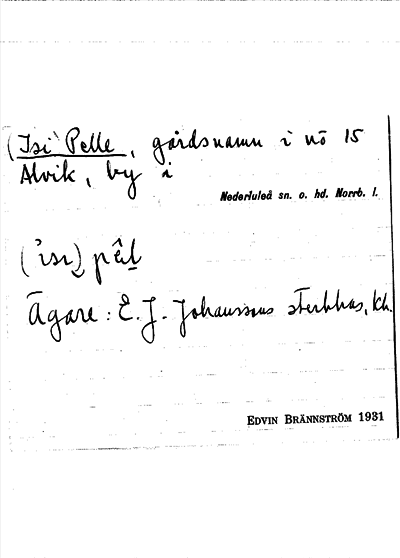 (Isi) Pelle, gårdsnamn i nö 15
Alvik, by i
Nederluleå sn. o. hd. Norrb. l.
Ägare: E. J. Johanssons sterbhus, kh.
EDVIN BRÄNNSTRÖM 1931